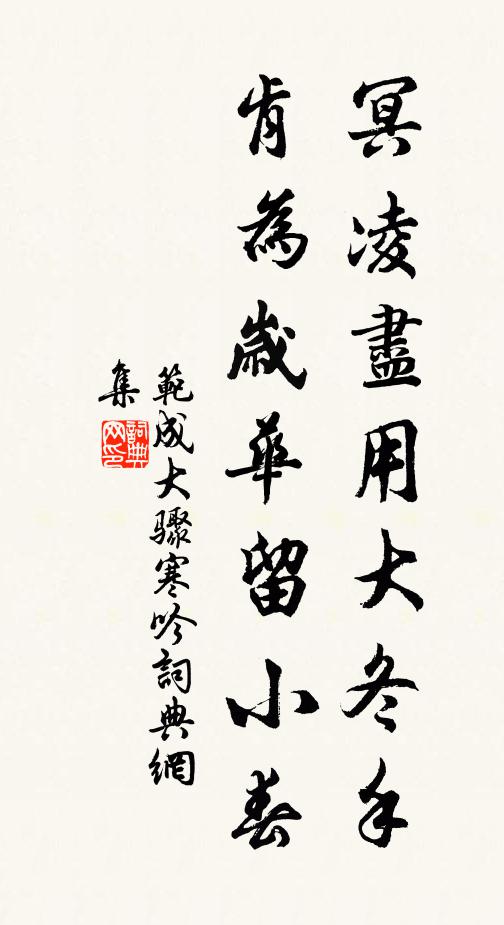 冥凌盡用大冬手
肯為歲華留小春
範成大驟寒吟詞典網
集
詞典網印